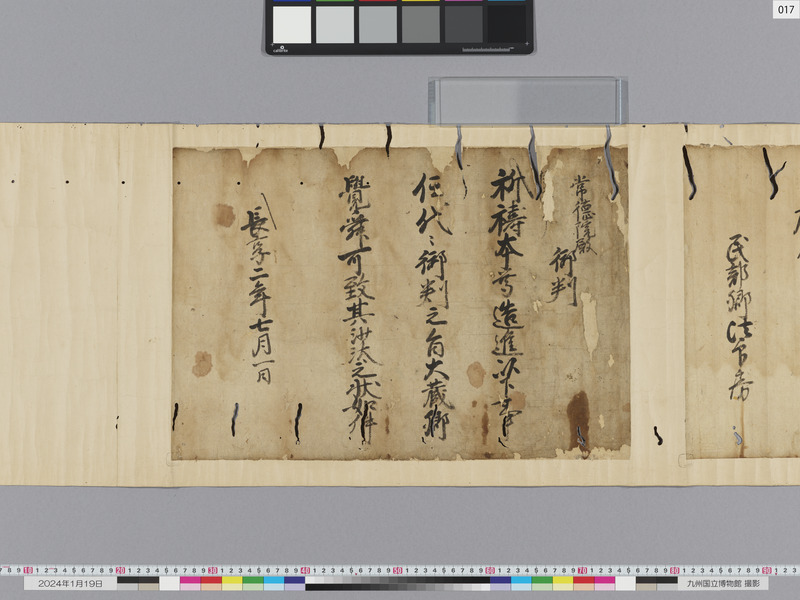 017
民部卿法印房
常徳院殿
御判
祈禱本尊造進以下事
任代々御判之旨大蔵卿
覺舜可致其沙汰之状如件
長享二年七月一日
2024年1月19日
九州国立博物館 撮影